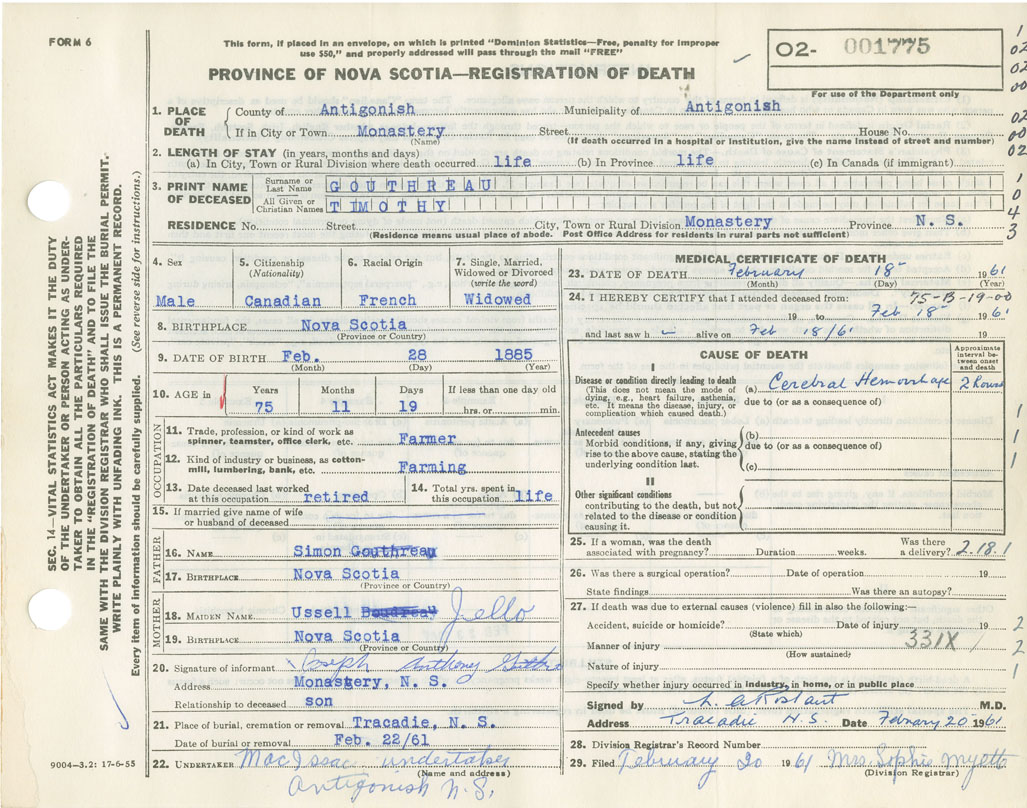 FORM 6
This form, if placed in an envelope, on which is printed "Dominion Statistics—Free, penalty for improper
use $50," and properly addressed will pass through the mail "FREE"
PROVINCE OF NOVA SCOTIA—REGISTRATION OF DEATH
O2- 001775
For use of the Department only
1. PLACE OF DEATH
County of Antigonish Municipality of Antigonish
If in City or Town Monastery Street House No.
(Name) (If death occurred in a hospital or institution, give the name instead of street and number)
2. LENGTH OF STAY (in years, months and days)
(a) In City, Town or Rural Division where death occurred life (b) In Province life (c) In Canada (if immigrant)
3. PRINT NAME OF DECEASED
Surname or Last Name GOUTHREAU
All Given or Christian Names TIMOTHY
RESIDENCE No. Street City, Town or Rural Division Monastery Province N. S.
(Residence means usual place of abode. Post Office Address for residents in rural parts not sufficient)
4. Sex Male
5. Citizenship (Nationality) Canadian
6. Racial Origin French
7. Single, Married, Widowed or Divorced (write the word) Widowed
8. BIRTHPLACE Nova Scotia
(Province or Country)
9. DATE OF BIRTH Feb. 28 1885
(Month) (Day) (Year)
10. AGE in Years 75 Months 11 Days 19 If less than one day old hrs. or min.
OCCUPATION
11. Trade, profession or kind of work as spinner, teamster, office clerk, etc. Farmer
12. Kind of industry or business, as cotton-mill, lumbering, bank, etc. Farming
13. Date deceased last worked at this occupation retired
14. Total yrs. spent in this occupation life
15. If married give name of wife or husband of deceased
FATHER
16. NAME Simon Gouthreau
17. BIRTHPLACE Nova Scotia
(Province or Country)
MOTHER
18. MAIDEN NAME Ussell Boudreau Jello
19. BIRTHPLACE Nova Scotia
(Province or Country)
20. Signature of informant Joseph Anthony
Address Monastery, N. S.
Relationship to deceased son
21. Place of burial, cremation or removal Tracadie, N. S.
Date of burial or removal Feb. 22/61
22. UNDERTAKER MacIssac undertaker
(Name and address)
Antigonish N.S.
9004—3.2: 17-6-55
SEC. 14—VITAL STATISTICS ACT MAKES IT THE DUTY
OF THE UNDERTAKER OR PERSON ACTING AS UNDER-
TAKER TO OBTAIN ALL THE PARTICULARS REQUIRED
IN THE "REGISTRATION OF DEATH" AND TO FILE THE
SAME WITH THE DIVISION REGISTRAR WHO SHALL ISSUE THE BURIAL PERMIT.
WRITE PLAINLY WITH UNFADING INK. THIS IS A PERMANENT RECORD.
Every item of information should be carefully supplied. (See reverse side for instructions.)
MEDICAL CERTIFICATE OF DEATH
23. DATE OF DEATH February 18 1961
(Month) (Day) (Year)
24. I HEREBY CERTIFY that I attended deceased from: 75-B-19-00
19 to Feb 18 1961
and last saw h alive on Feb 18/61 19
CAUSE OF DEATH
Approximate interval between onset and death
I
Disease or condition directly leading to death
(This does not mean the mode of dying, e.g., heart failure, asthenia, etc. It means the disease, injury, or complication which caused death.)
(a) Cerebral Hemorrhage 2 hours
due to (or as a consequence of)
Antecedent causes
Morbid conditions, if any, giving rise to the above cause, stating the underlying condition last.
(b)
due to (or as a consequence of)
(c)
II
Other significant conditions
contributing to the death, but not related to the disease or condition causing it.
25. If a woman, was the death associated with pregnancy? Duration weeks. Was there a delivery? 2.18.1
26. Was there a surgical operation? Date of operation 19
State findings Was there an autopsy?
27. If death was due to external causes (violence) fill in also the following:—
Accident, suicide or homicide? Date of injury 19
(State which)
331X
Manner of injury
(How sustained)
Nature of injury
Specify whether injury occurred in industry, in home, or in public place
Signed by M.D.
Address Tracadie N.S. Date February 20 1961
28. Division Registrar's Record Number
29. Filed February 20 1961 Mrs. Sophie Myette
(Division Registrar)
1
02
02
00
02
00
02
1
0
4
3
1
1
1
2
2
1